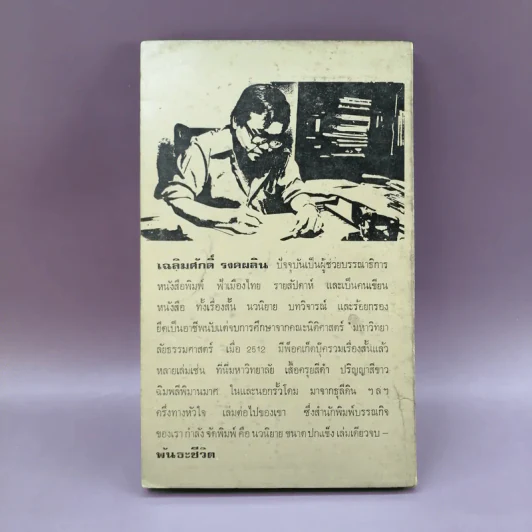 เฉลิมศักดิ์ รงคผลิน ปัจจุบันเป็นผู้ช่วยบรรณาธิการ
หนังสือพิมพ์ ฟ้าเมืองไทย รายสัปดาห์ และเป็นคนเขียน
หนังสือ ทั้งเรื่องสั้น นวนิยาย บทวิจารณ์ และร้อยกรอง
ยึดเป็นอาชีพนับแต่จบการศึกษาจากคณะนิติศาสตร์ มหาวิทยา
ลัยธรรมศาสตร์ เมื่อ 2512 มีพ็อคเก็ตบุ๊ครวมเรื่องสั้นแล้ว
หลายเล่มเช่น ที่นี่มหาวิทยาลัย เสื้อครุยสีดำ ปริญญาสีขาว
ฉิมพลีพิมานมาศ ในและนอกรั้วโดม มาจากธุลีดิน ฯลฯ
ครึ่งทางหัวใจ เล่มต่อไปของเขา ซึ่งสำนักพิมพ์บรรณกิจ
ของเรา กำลัง จัดพิมพ์ คือ นวนิยาย ขนาด ปกแข็ง เล่มเดียวจบ –
พันธะชีวิต